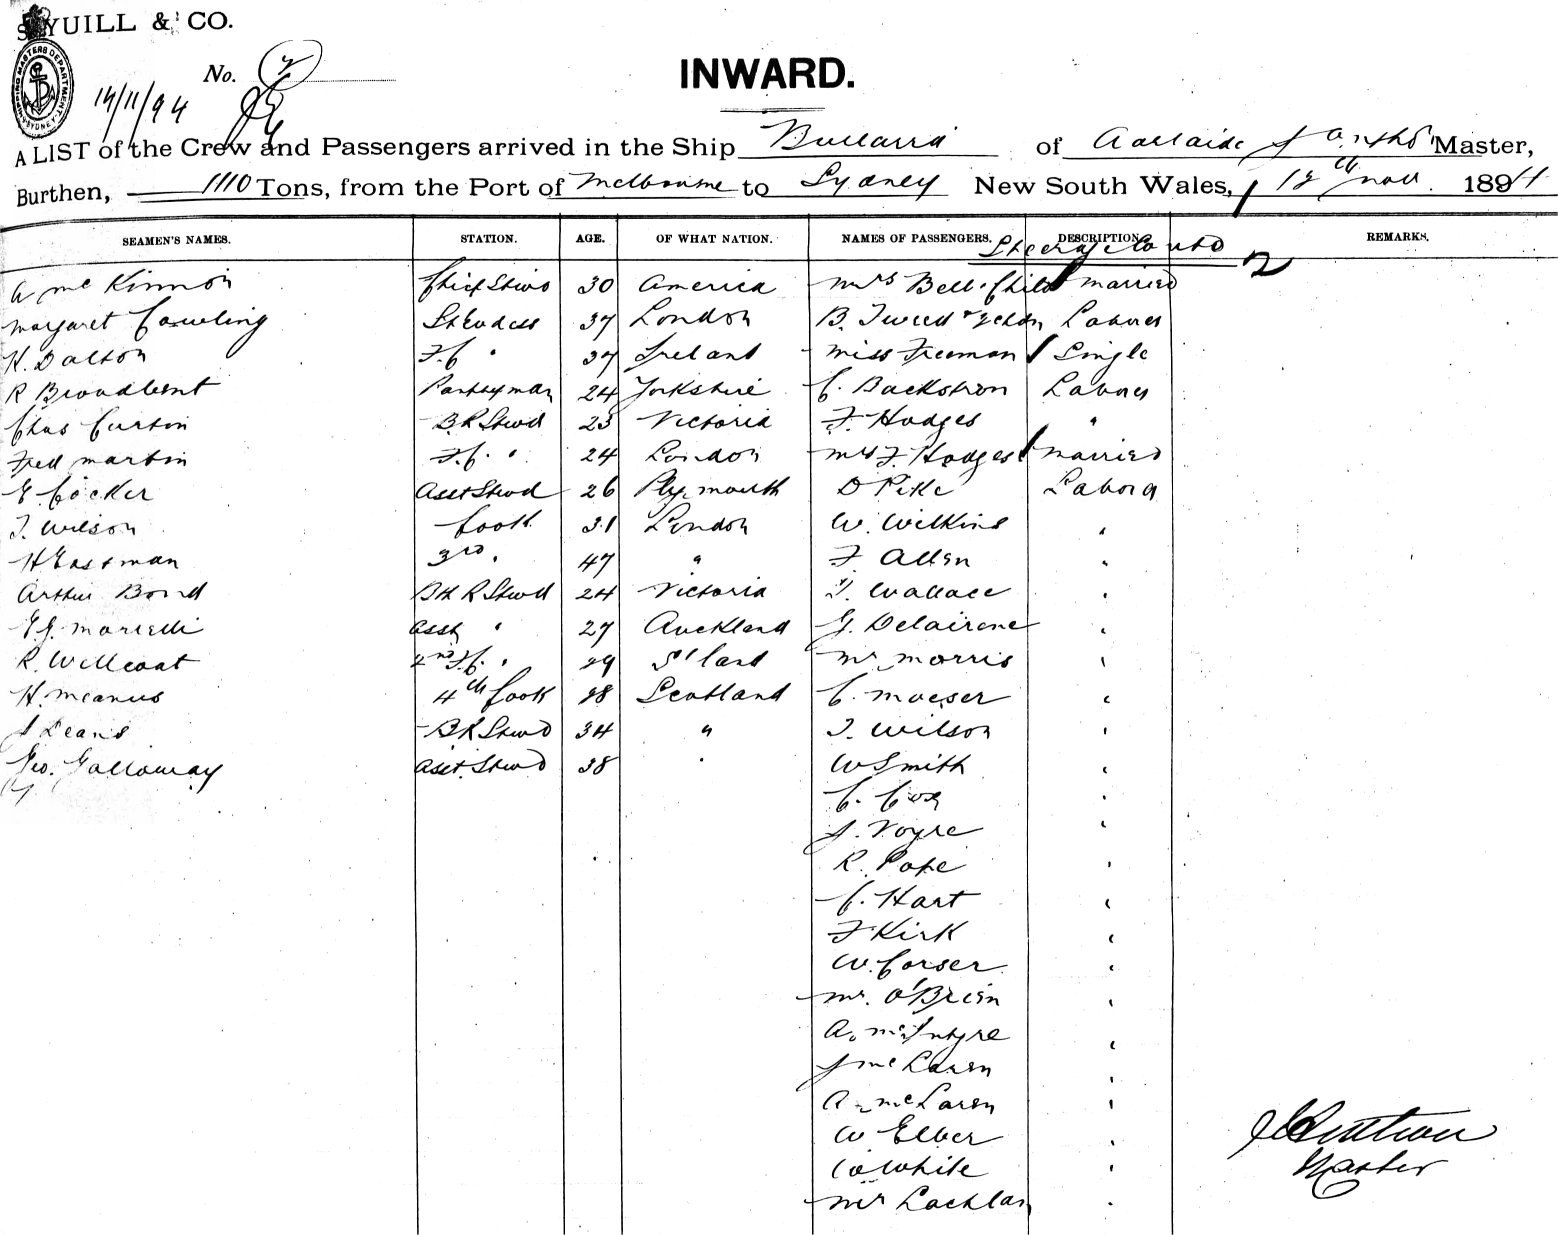 S. YUILL & CO.
SHIPPING MASTERS DEPARTMENT SYDNEY
No. 2
INWARD.
14/11/94
A LIST of the Crew and Passengers arrived in the Ship Bullarra of Adelaide Master,
Burthen, 1110 Tons, from the Port of Melbourne to Sydney New South Wales, 12th Nov. 1894
SEAMEN'S NAMES. STATION. AGE. OF WHAT NATION. NAMES OF PASSENGERS. DESCRIPTION. REMARKS.
Steerage Contd 2
A McKinnon Chief Stwd 30 America Mrs Bell & Child Married
Margaret Cowling Stewdess 37 London B. Tweed Labourer
H. Dalton F.C. " 37 Ireland Miss Freeman Single
R Broadbent Pantryman 24 Yorkshire C. Backstrom Labourer
Chas Curtin B.R Stwd 23 Victoria F. Hodges "
Fred Martin F.C. " 24 London Mrs F. Hodges Married
E Cocker Asst Stwd 26 Plymouth D Pike Labourer
T. Wilson Cook 31 London W. Wilkins "
H Eastman 3rd " 47 " F Allen "
Arthur Bond Bth R Stwd 24 Victoria T. Wallace "
Asst " 27 Auckland G. Delairene "
R. Willcoat 2nd F.C. " 29 S'land Mr Morris "
H. Meanus 4th Cook 28 Scotland C. Moeser "
J Deans B R Stwd 34 " T. Wilson "
Geo. Galloway Asst. Stwd 38 " W Smith "
C. Cox "
J. Noyre "
R. Pope "
C. Hart "
F Kirk "
W. Corser "
Mr. O'Brien "
A. McIntyre "
J McLaren "
A McLaren "
W Elber "
W White "
Mr Lachlan "
Master